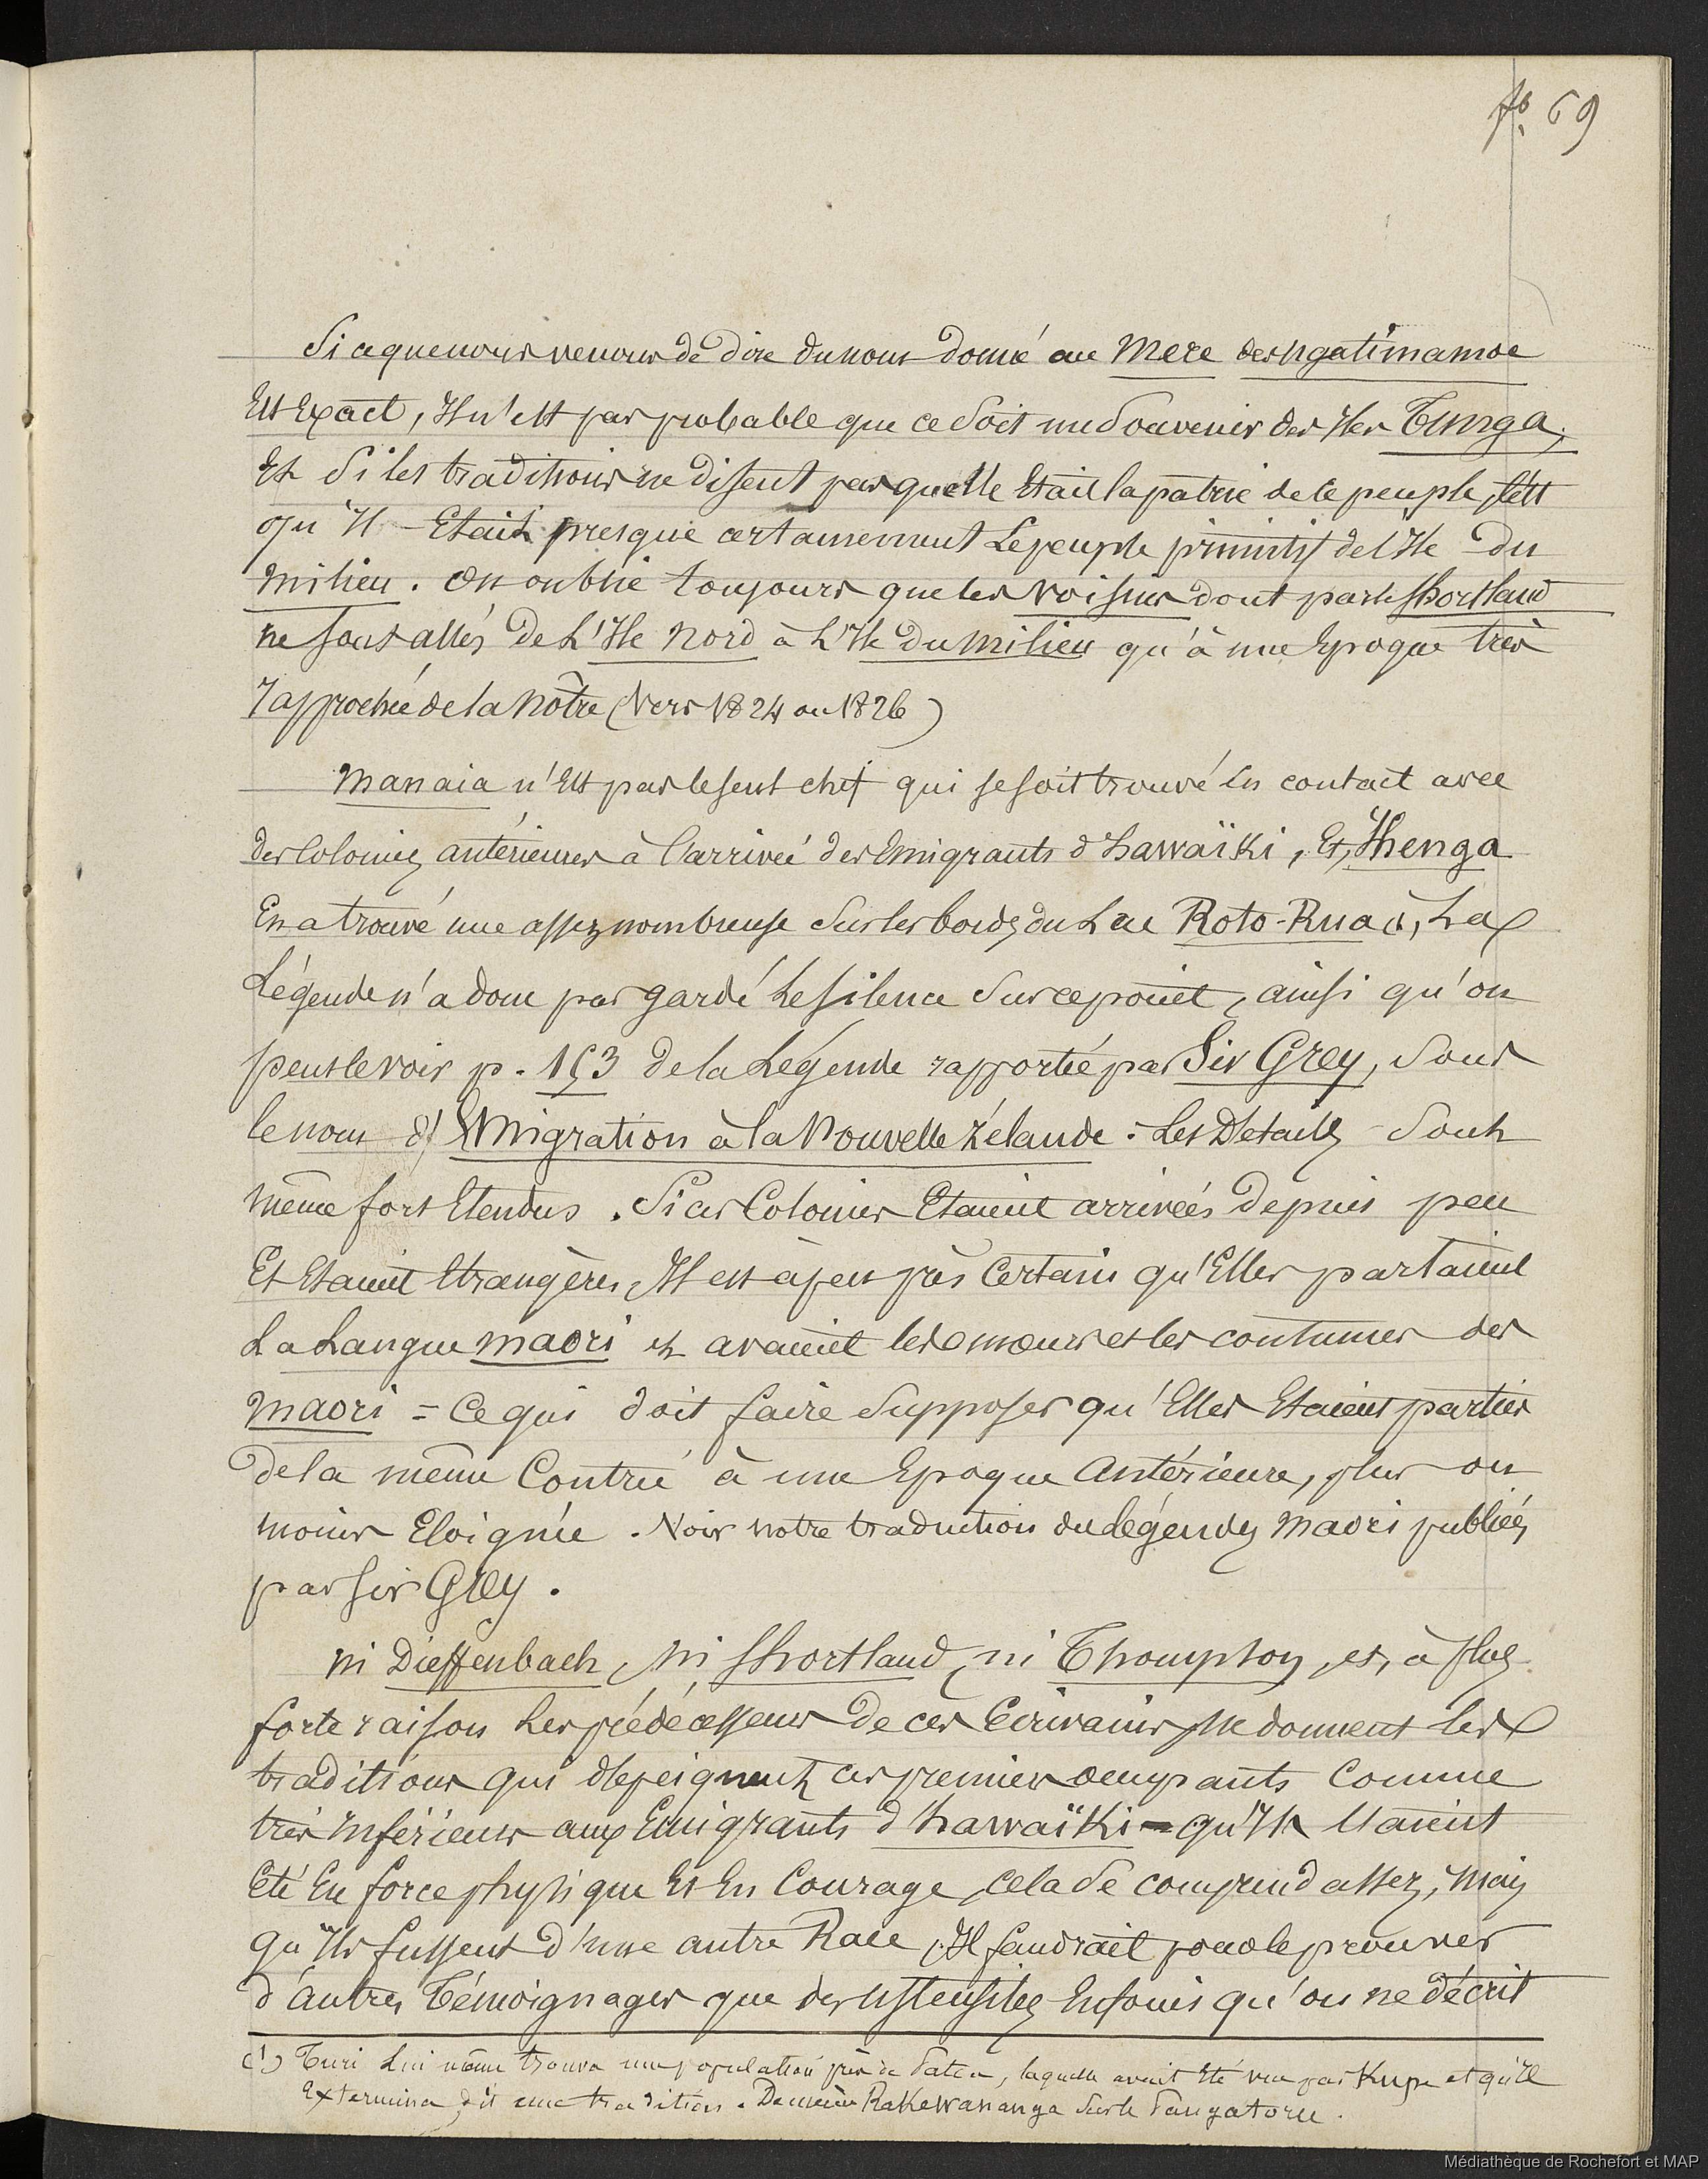 fo. 69
Si ce que nous venons de dire du nom donné au Mere des ngatimamoe
Est Exact, Il n'est pas probable que ce soit un souvenir des Iles Tunga,
Et Si les traditions ne disent pas quelle Etait la patrie de ce peuple, c'est
qu'Il Etait presque certainement Le peuple primitif de l'Ile du
Milieu. On oublie toujours que les voisins dont parle Shortland
ne sont allés de L'Ile Nord à L'Ile Du Milieu qu'à une Epoque très
rapprochée de la Nôtre (Vers 1824 ou 1826)
Manaia n'Est pas le seul chef qui se soit trouvé En contact avec
des Colonies antérieures à L'arrivée des Emigrants d'hawaïki, Et, Ihenga
En a trouvé une assez nombreuse Sur les bords du Lac Roto-Rua (1), La
Légende n'a donc pas gardé Le silence Sur ce point, ainsi qu'on
peut le voir p. 153 de la Légende rapportée par Sir Grey, Sous
le nom d'Emigration à la Nouvelle Zélande. Les Détails Sont
même fort Etendus. Si ces Colonies Etaient arrivées Depuis peu
Et Etaient Etrangères, Il est à peu près Certain qu'Elles parlaient
La Langue maori et avaient les mœurs et les coutumes des
Maori = Ce qui doit faire Supposer qu'Elles Etaient parties
de la même Contrée à une Epoque Antérieure, plus ou
moins Eloignée. Voir notre traduction des Légendes Maori publiées
par Sir Grey.
Ni Dieffenbach, Ni Shortland, ni Thompson, et, à plus
forte raison Les prédécesseurs De ces Ecrivains, Ne donnent les
traditions qui dépeignent ces premiers occupants Comme
très Inférieurs aux Emigrants d'hawaïki = qu'Ils l'aient
Eté En force physique Et En Courage, cela se comprend assez, Mais
qu'Ils fussent d'une autre Race, Il faudrait pour le prouver
d'autres Témoignages que des Ustensiles Enfouis qu'on ne décrit
(1) Turi Lui même trouva une population près de Patea, laquelle avait Eté vue par Kupe et qu'Il
Extermina, dit une tradition. De même Rakewananga Sur le Tangatoru.
Médiathèque de Rochefort et MAP